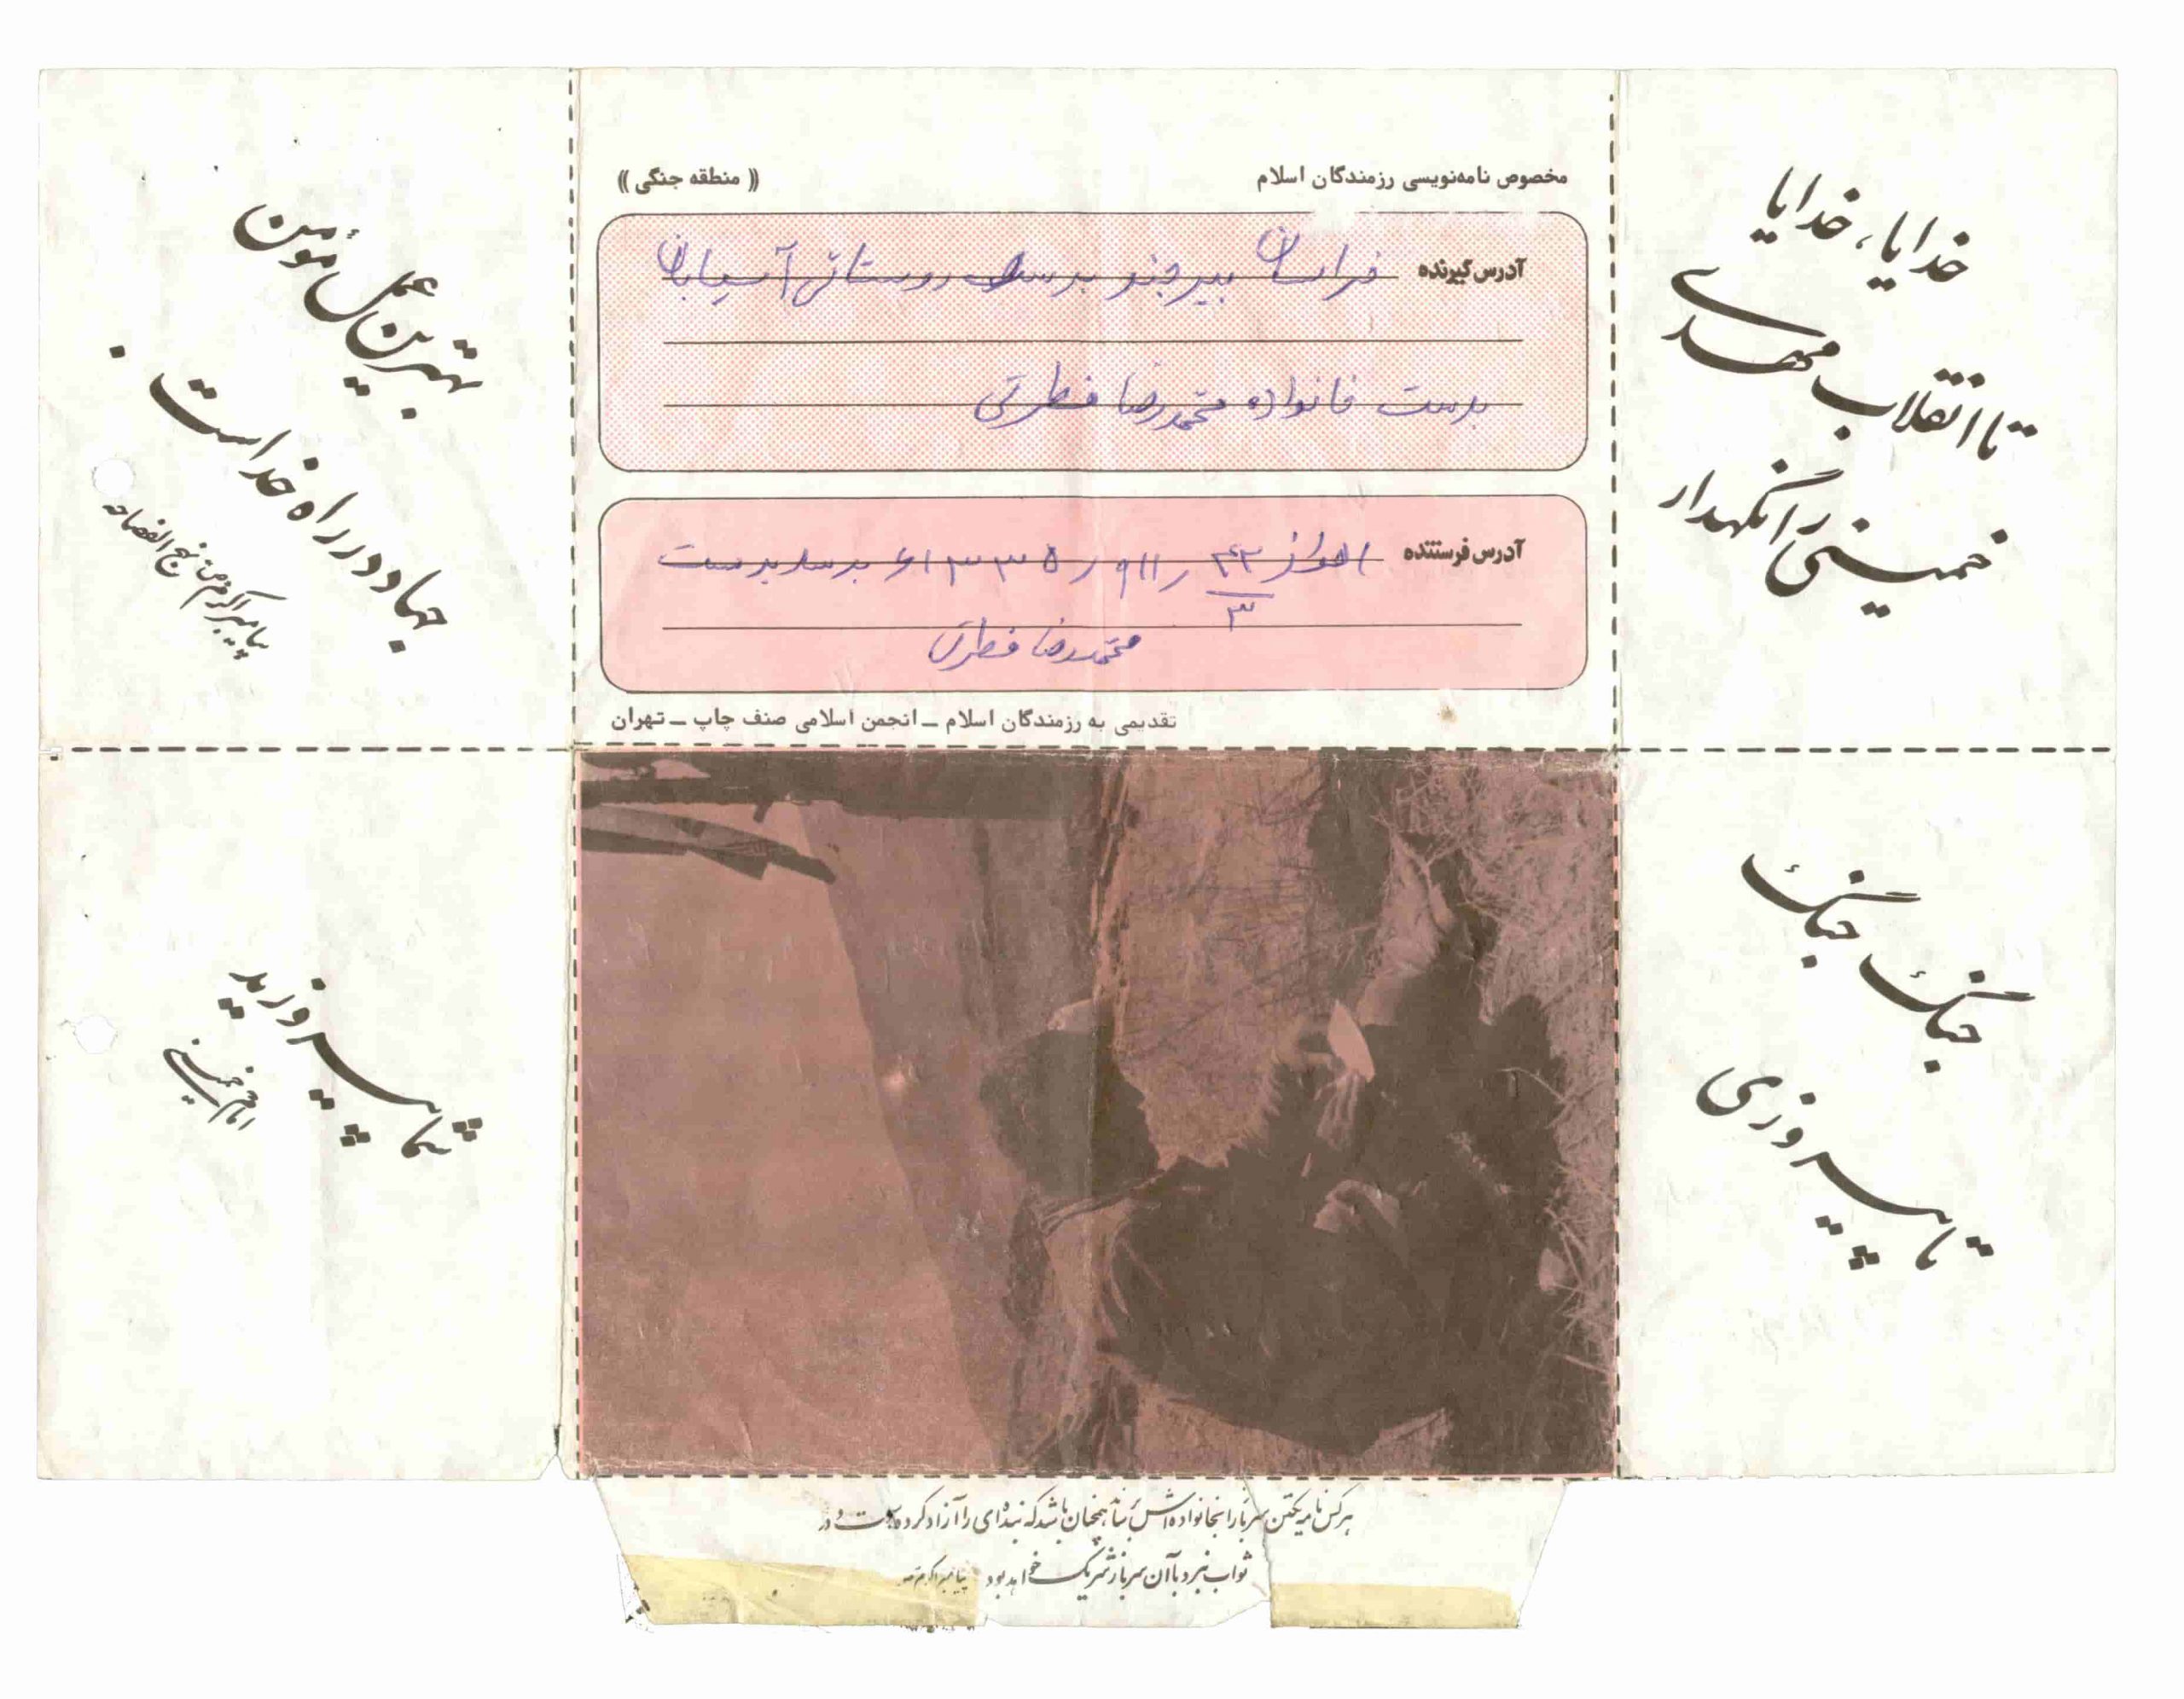 مخصوص نامه‌نویسی رزمندگان اسلام
(( منطقه جنگی ))
آدرس گیرنده خراسان بیرجند برسد روستای آسیابان
بدست خانواده محمدرضا فطرتی
آدرس فرستنده اهواز ۴۳/۳ ر ۹۱۱ ر ۶۱۳۳۵ برسد بدست
محمدرضا فطرتی
تقدیمی به رزمندگان اسلام ــ انجمن اسلامی صنف چاپ ــ تهران
خدایا، خدایا
تا انقلاب مهدی
خمینی را نگهدار
جنگ جنگ
تا پیروزی
بهترین عمل مؤمن
جهاد در راه خداست .
پیامبر اکرم ص نهج الفصاحه
شما پیروزید
امام خمینی
هرکس نامه یکتن سرباز را بخانواده‌اش برساند همچنان باشد که بنده‌ای را آزاد کرده است و در
ثواب نبرد با آن سرباز شریک خواهد بود پیامبر اکرم ص